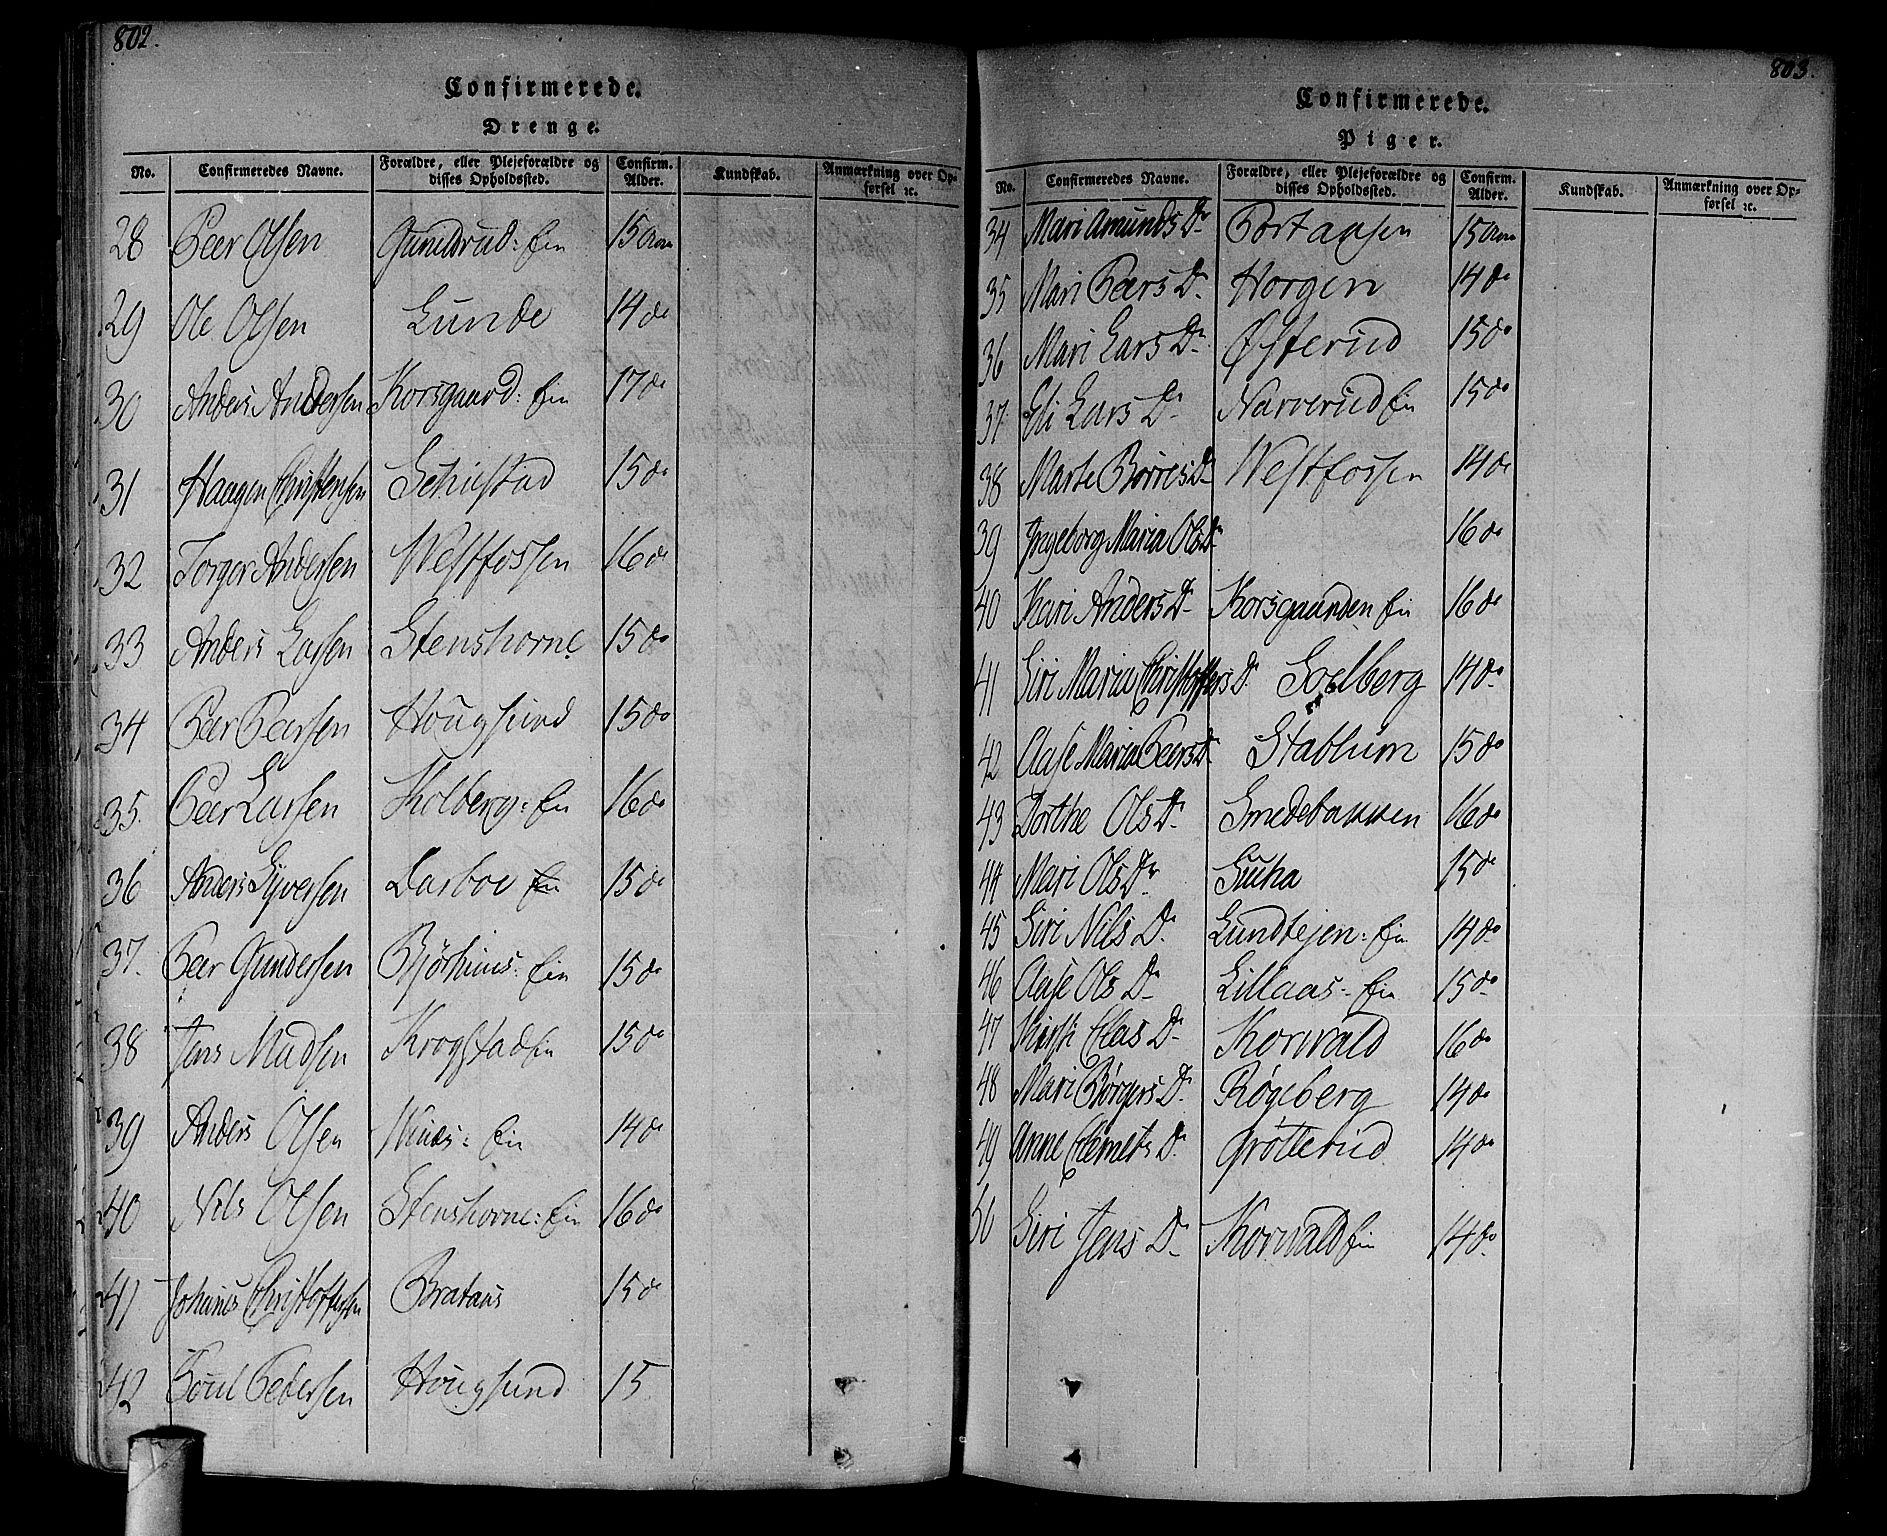 802.
Confirmerede.
Drenge.
No. Confirmeredes Navne. Forældre, eller Plejeforældre og disses Opholdssted. Confirm. Alder. Kundskab. Anmærkning over Opførsel ꝛc.
28 Peer Olsen Gunildrud: Ein 15 Aar
29 Ole Olsen Lunde 14 do
30 Anders Andersen Korsgaard: Ein 17 do
31 Haagen Christensen Schiestad 15 do
32 Torger Andersen Westfossen 16 do
33 Anders Larsen Stenshorne 15 do
34 Peer Peersen Hougsund 15 do
35. Peer Larsen Kolberg: Ein 16 do
36 Anders Syversen Darboe Ein 15 do
37. Peer Gundersen Ein 15 do
38 Jens Madsen Krogstad Ein 15 do
39 Anders Olsen Ein 14 do
40 Nils Olsen Stenshorne: Ein 16 do
41 Johannes Christoffersen Brataas 15 do
42 Poul Pedersen Hougsund 15
803.
Confirmerede.
Piger.
No. Confirmeredes Navne. Forældre, eller Plejeforældre og disses Opholdssted. Confirm. Alder. Kundskab. Anmærkning over Opførsel ꝛc.
34 Mari Amunds Dr Portaasen 15 Aar
35 Mari Peers Dr Horgen 14 do
36 Mari Lars Dr Østerud 15 do
37 Eli Lars Dr Narverud Ein 15 do
38 Marte Børres Dr Westfossen 14 do
39 Ingeborg Maria Ols Dr 16 do
40 Kari Anders Dr Korsgaarden Ein 16 do
41 Siri Maria Christoffers Dr Soelberg 14 do
42 Aase Maria Peers Dr Stablum 15 do
43 Dorthe Ols Dr Smedebakken 16 do
44 Mari Ols Dr 15 do
45 Siri Nils Dr Lundtejen: Ein 14 do
46 Aase Ols Dr Lillaas: Ein 15 do
47 Kirsti Elas Dr Korvald 16 do
48 Mari Børgers Dr Røgeberg 14 do
49 Anne Clemets Dr Grøtterud 14 do
50 Siri Jens Dr Korvald Ein 14 do